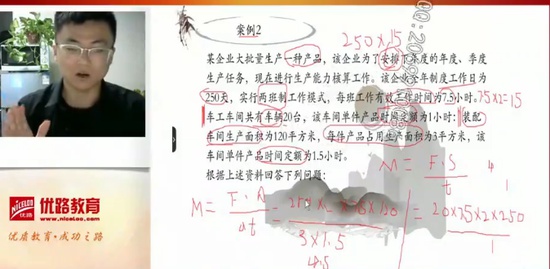 案例2
250×15
某企业大批量生产一种产品，该企业为了安排下年度的年度、季度
生产任务，现在进行生产能力核算工作。该企业全年制度工作日为
250天，实行两班制工作模式，每班工作有效工作时间为7.5小时。
7.5×2=15
车工车间共有车辆20台，该车间单件产品时间定额为1小时；装配
车间生产面积为120平方米，每件产品占用生产面积为3平方米，该
车间单件产品时间定额为1.5小时。
根据上述资料回答下列问题：
M=F·S
t
M=F·A
at
3×1.5
4.5
=20×7.5×2×250
1
NICELOO
优路
优路教育
www.niceloo.com
优质教育·成功之路